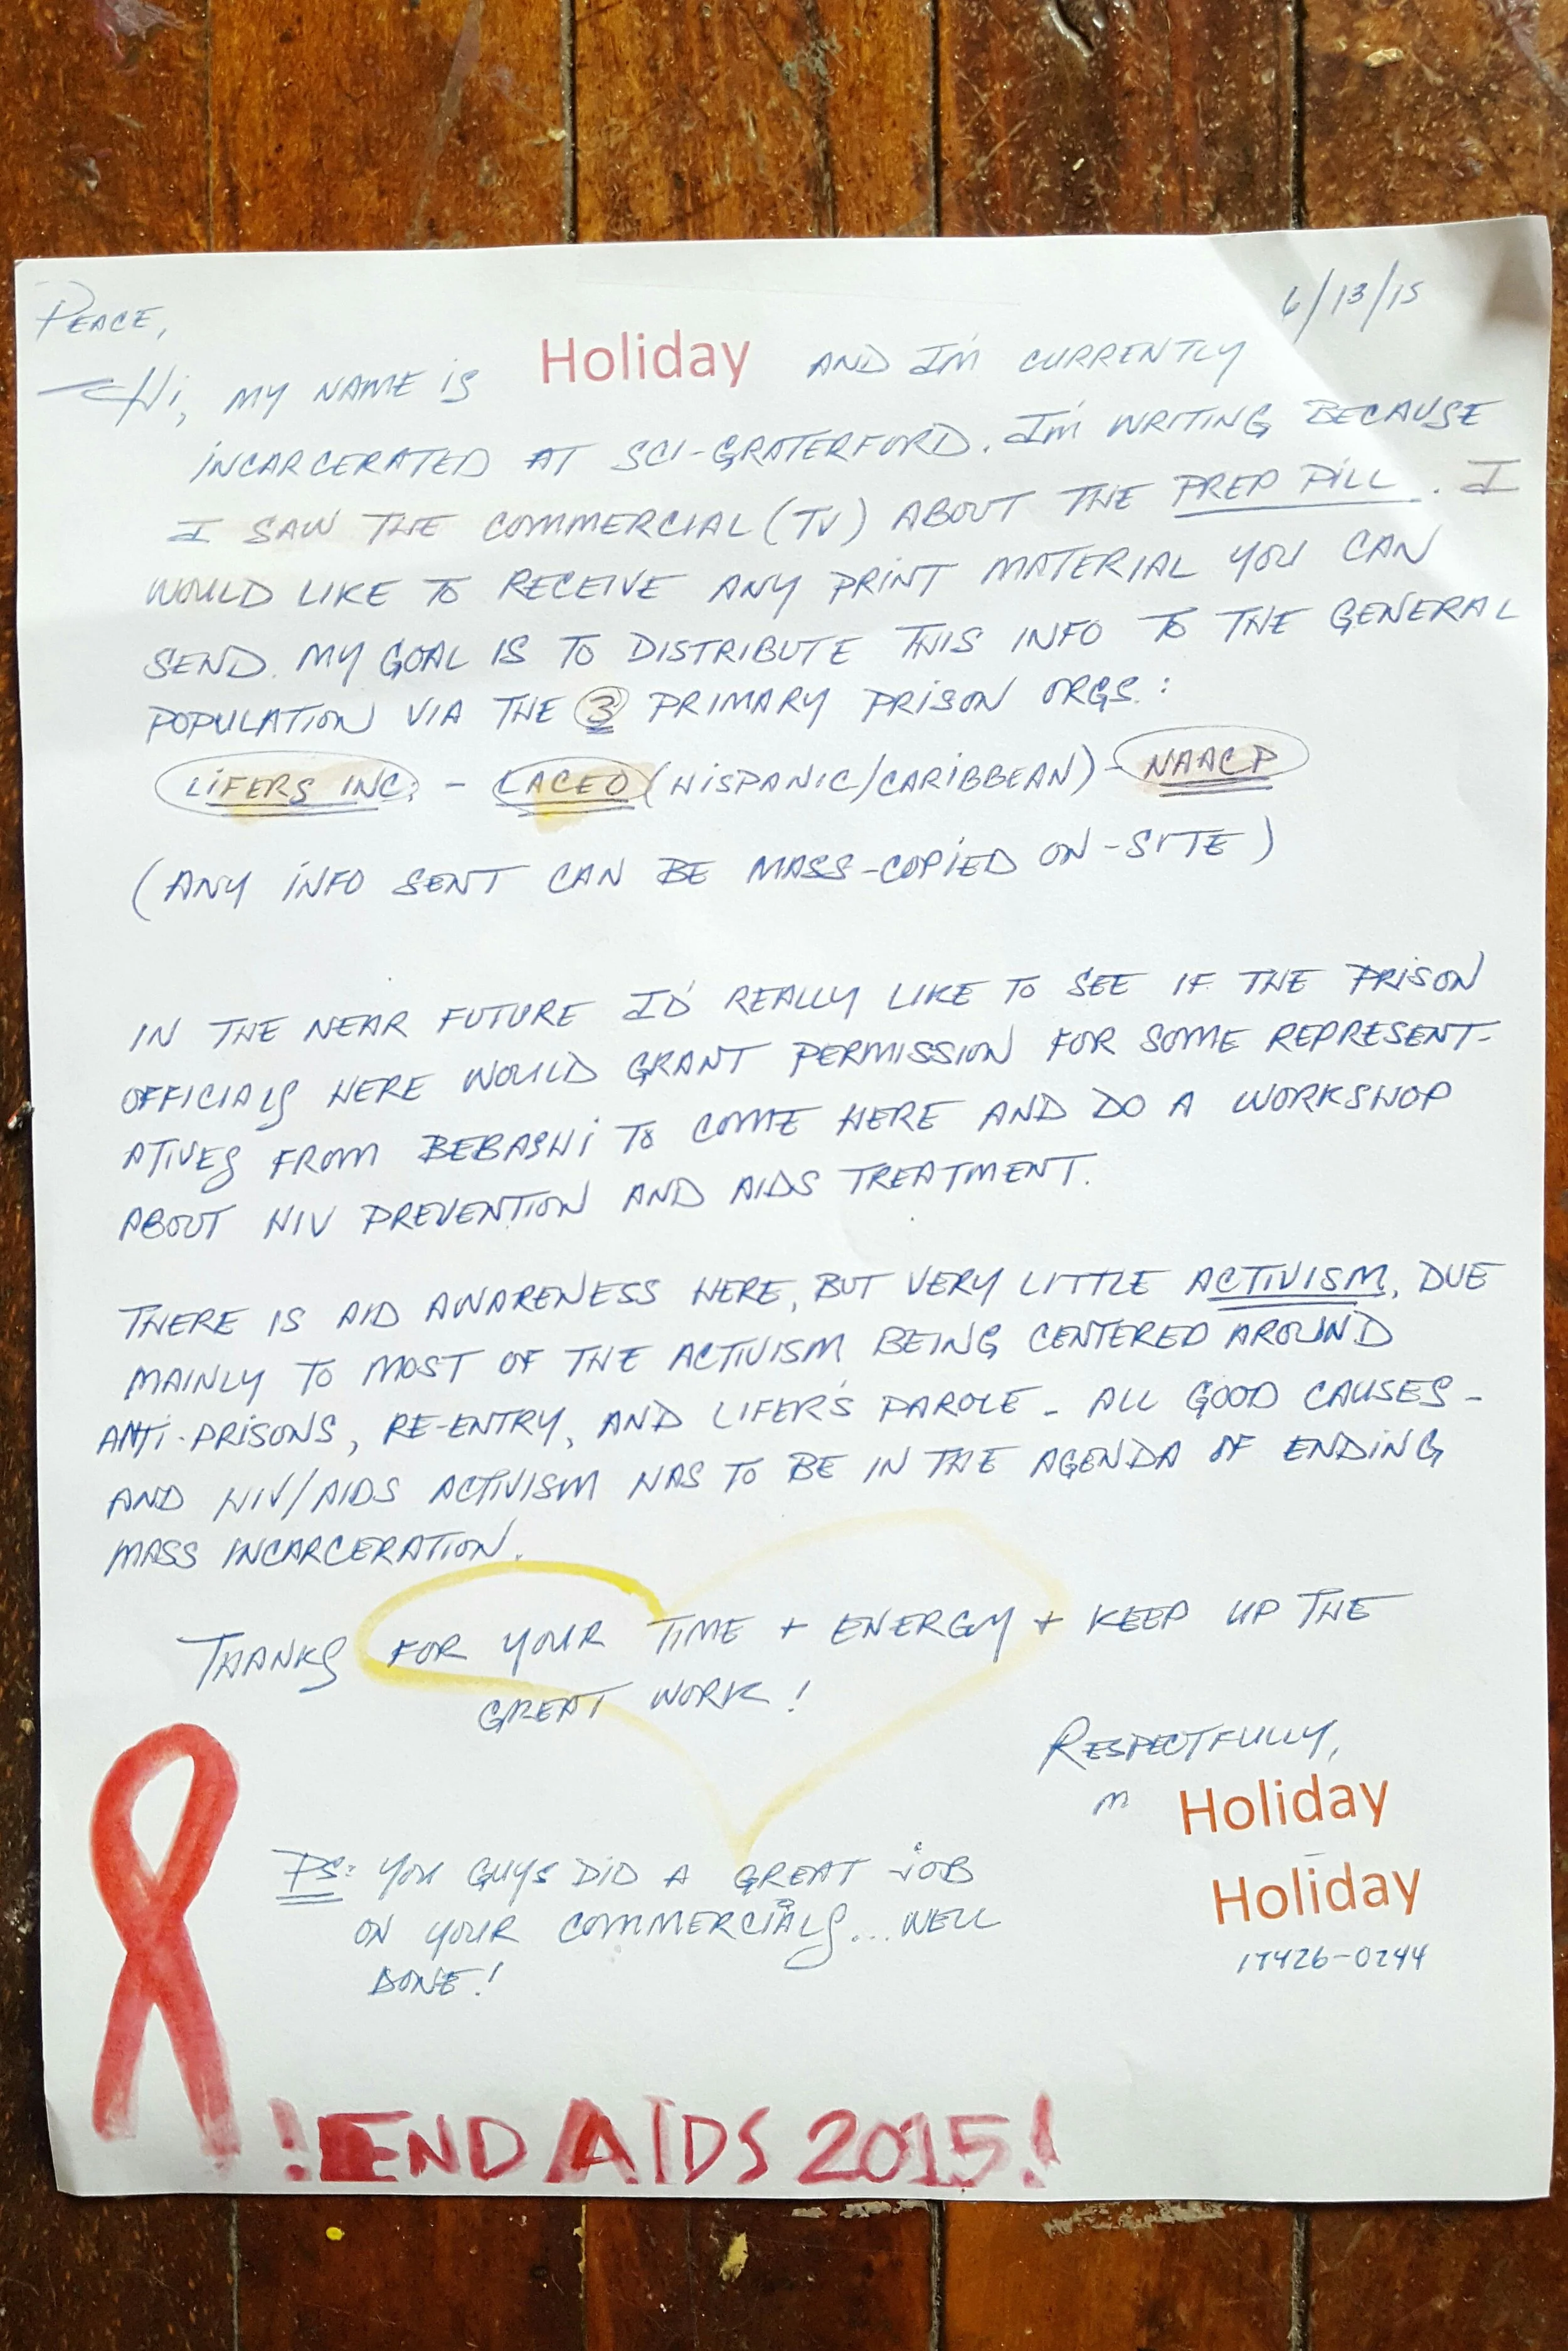 6/13/15
PEACE,
Hi, MY NAME IS Holiday AND I'M CURRENTLY
INCARCERATED AT SCI-GRATERFORD. I'M WRITING BECAUSE
I SAW THE COMMERCIAL (TV) ABOUT THE PREP PILL. I
WOULD LIKE TO RECEIVE ANY PRINT MATERIAL YOU CAN
SEND. MY GOAL IS TO DISTRIBUTE THIS INFO TO THE GENERAL
POPULATION VIA THE 3 PRIMARY PRISON ORGS.:
LIFERS INC. - LACEO (HISPANIC/CARIBBEAN) - NAACP
(ANY INFO SENT CAN BE MASS-COPIED ON-SITE)
IN THE NEAR FUTURE I'D REALLY LIKE TO SEE IF THE PRISON
OFFICIALS HERE WOULD GRANT PERMISSION FOR SOME REPRESENT-
ATIVES FROM BEBASHI TO COME HERE AND DO A WORKSHOP
ABOUT HIV PREVENTION AND AIDS TREATMENT.
THERE IS AID AWARENESS HERE, BUT VERY LITTLE ACTIVISM, DUE
MAINLY TO MOST OF THE ACTIVISM BEING CENTERED AROUND
ANTI-PRISONS, RE-ENTRY, AND LIFER'S PAROLE - ALL GOOD CAUSES -
AND HIV/AIDS ACTIVISM HAS TO BE IN THE AGENDA OF ENDING
MASS INCARCERATION.
THANKS FOR YOUR TIME + ENERGY + KEEP UP THE
GREAT WORK!
RESPECTFULLY,
Holiday
Holiday
PS: YOU GUYS DID A GREAT JOB
ON YOUR COMMERCIALS... WELL
DONE!
!END AIDS 2015!